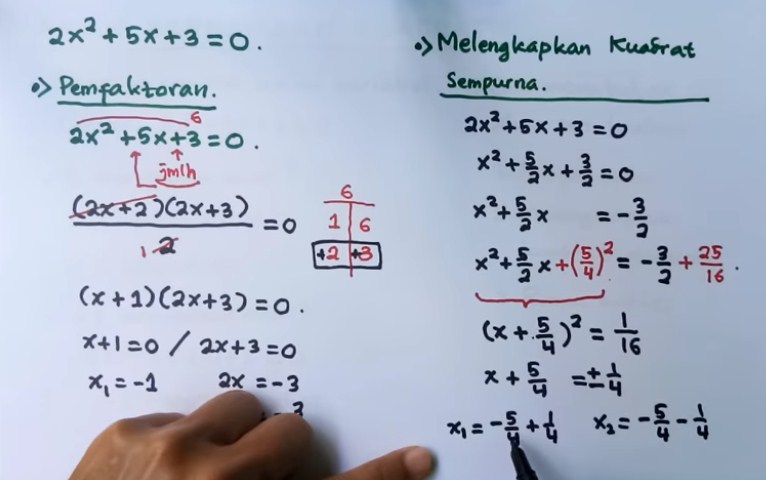 2x² + 5x + 3 = 0.
•> Pemfaktoran.
6
2x² + 5x + 3 = 0.
jmlh
(2x+2)(2x+3) = 0
1 2
6
1 6
+2 +3
(x+1)(2x+3) = 0.
x+1 = 0 / 2x+3 = 0
x₁ = -1 2x = -3
3
•> Melengkapkan Kuadrat
Sempurna.
2x² + 5x + 3 = 0
x² + 5/2 x + 3/2 = 0
x² + 5/2 x = - 3/2
x² + 5/2 x + (5/4)² = - 3/2 + 25/16.
(x + 5/4)² = 1/16
x + 5/4 = ± 1/4
x₁ = - 5/4 + 1/4 x₂ = - 5/4 - 1/4